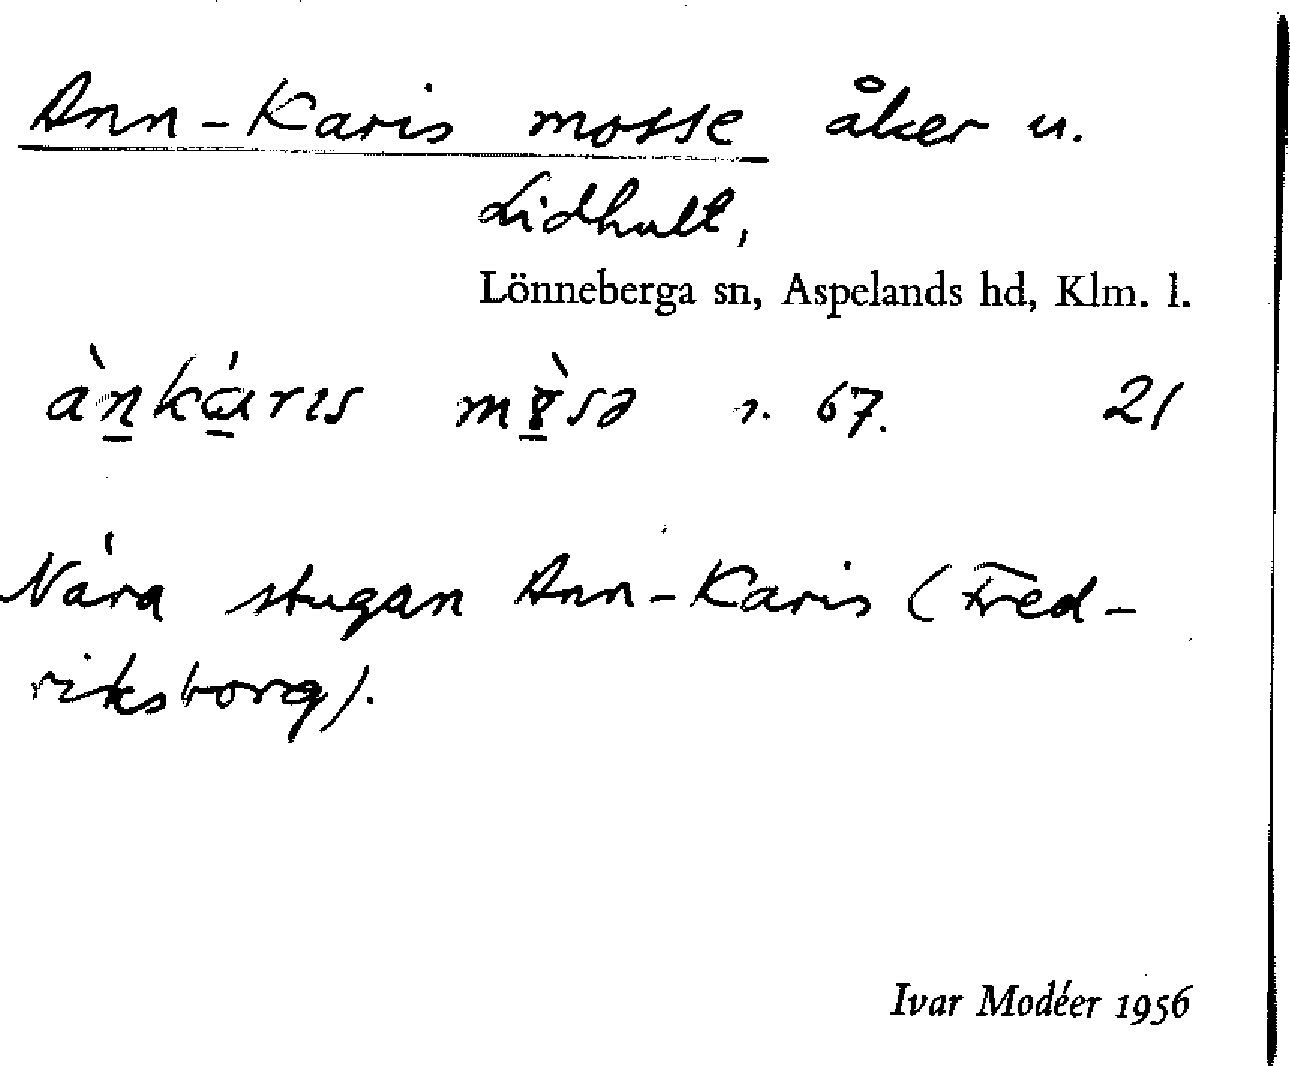 Ann-Karis mosse åker u.
Lidhult,
Lönneberga sn, Aspelands hd, Klm. l.
ànkáris m s ə r. 67. 21
Nära stugan Ann-Karis (Fred-
riksborg).
Ivar Modéer 1956